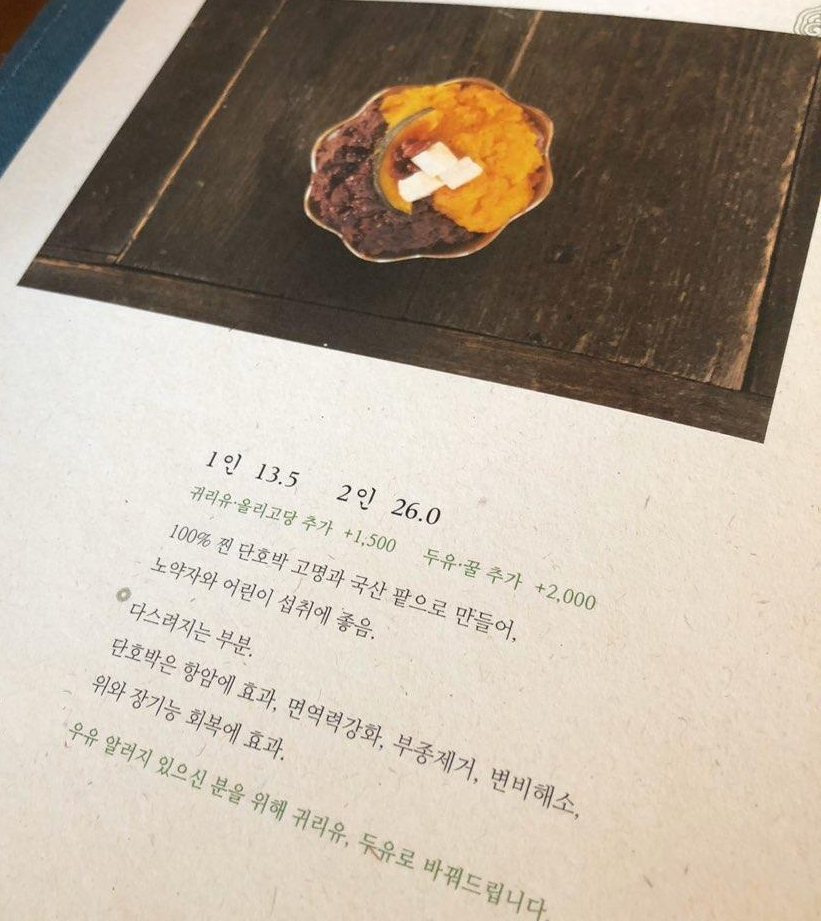 1인 13.5 2인 26.0
귀리유·올리고당 추가 +1,500 두유·꿀 추가 +2,000
100% 찐 단호박 고명과 국산 팥으로 만들어,
노약자와 어린이 섭취에 좋음.
다스려지는 부분.
단호박은 항암에 효과, 면역력강화, 부종제거, 변비해소,
위와 장기능 회복에 효과.
우유 알러지 있으신 분을 위해 귀리유, 두유로 바꿔드립니다.